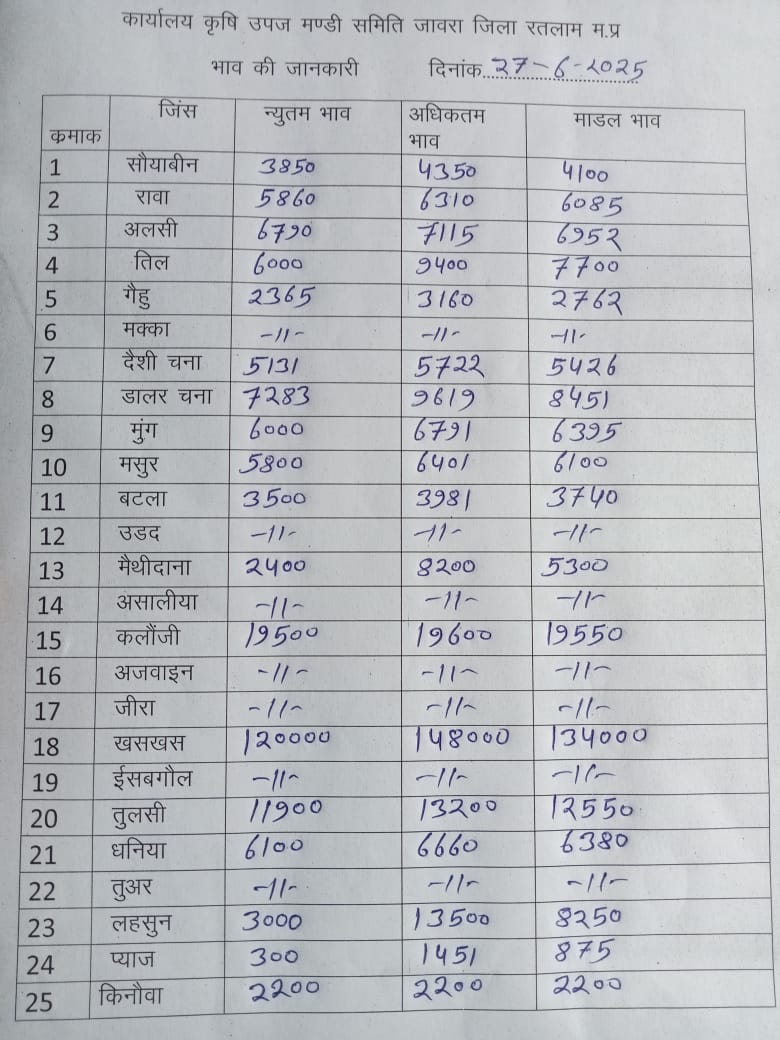 कार्यालय कृषि उपज मण्डी समिति जावरा जिला रतलाम म.प्र
भाव की जानकारी दिनांक..27-6-2025
कमाक जिंस न्युतम भाव अधिकतम भाव माडल भाव
1 सौयाबीन 3850 4350 4100
2 रावा 5860 6310 6085
3 अलसी 6790 7115 6952
4 तिल 6000 9400 7700
5 गैहु 2365 3160 2762
6 मक्का -11- -11- -11-
7 दैशी चना 5131 5722 5426
8 डालर चना 7283 9619 8451
9 मुंग 6000 6791 6395
10 मसुर 5800 6401 6100
11 बटला 3500 3981 3740
12 उडद -11- -11- -11-
13 मैथीदाना 2400 8200 5300
14 असालीया -11- -11- -11-
15 कलौंजी 19500 19600 19550
16 अजवाइन -11- -11- -11-
17 जीरा -11- -11- -11-
18 खसखस 120000 148000 134000
19 ईसबगौल -11- -11- -11-
20 तुलसी 11900 13200 12550
21 धनिया 6100 6660 6380
22 तुअर -11- -11- -11-
23 लहसुन 3000 13500 8250
24 प्याज 300 1451 875
25 किनौवा 2200 2200 2200